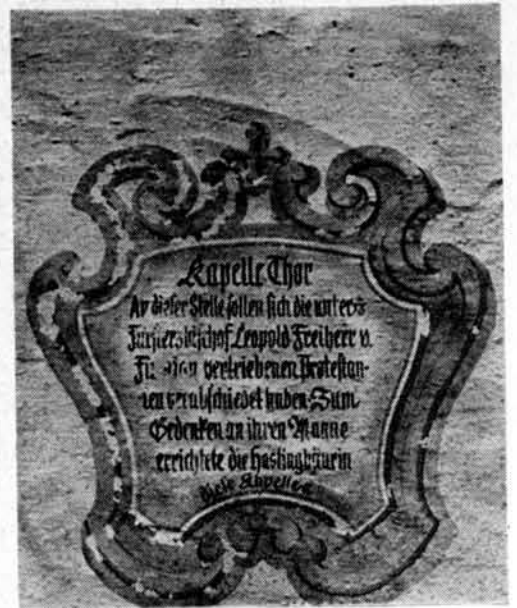 Kapelle Thor
An dieser Stelle sollen sich die unter
Fürsterzbischof Leopold Freiherr v.
vertriebenen Protestan-
ten verabschiedet haben. Zum
Gedenken an ihren Manne
errichtete die
diese Kapelle.